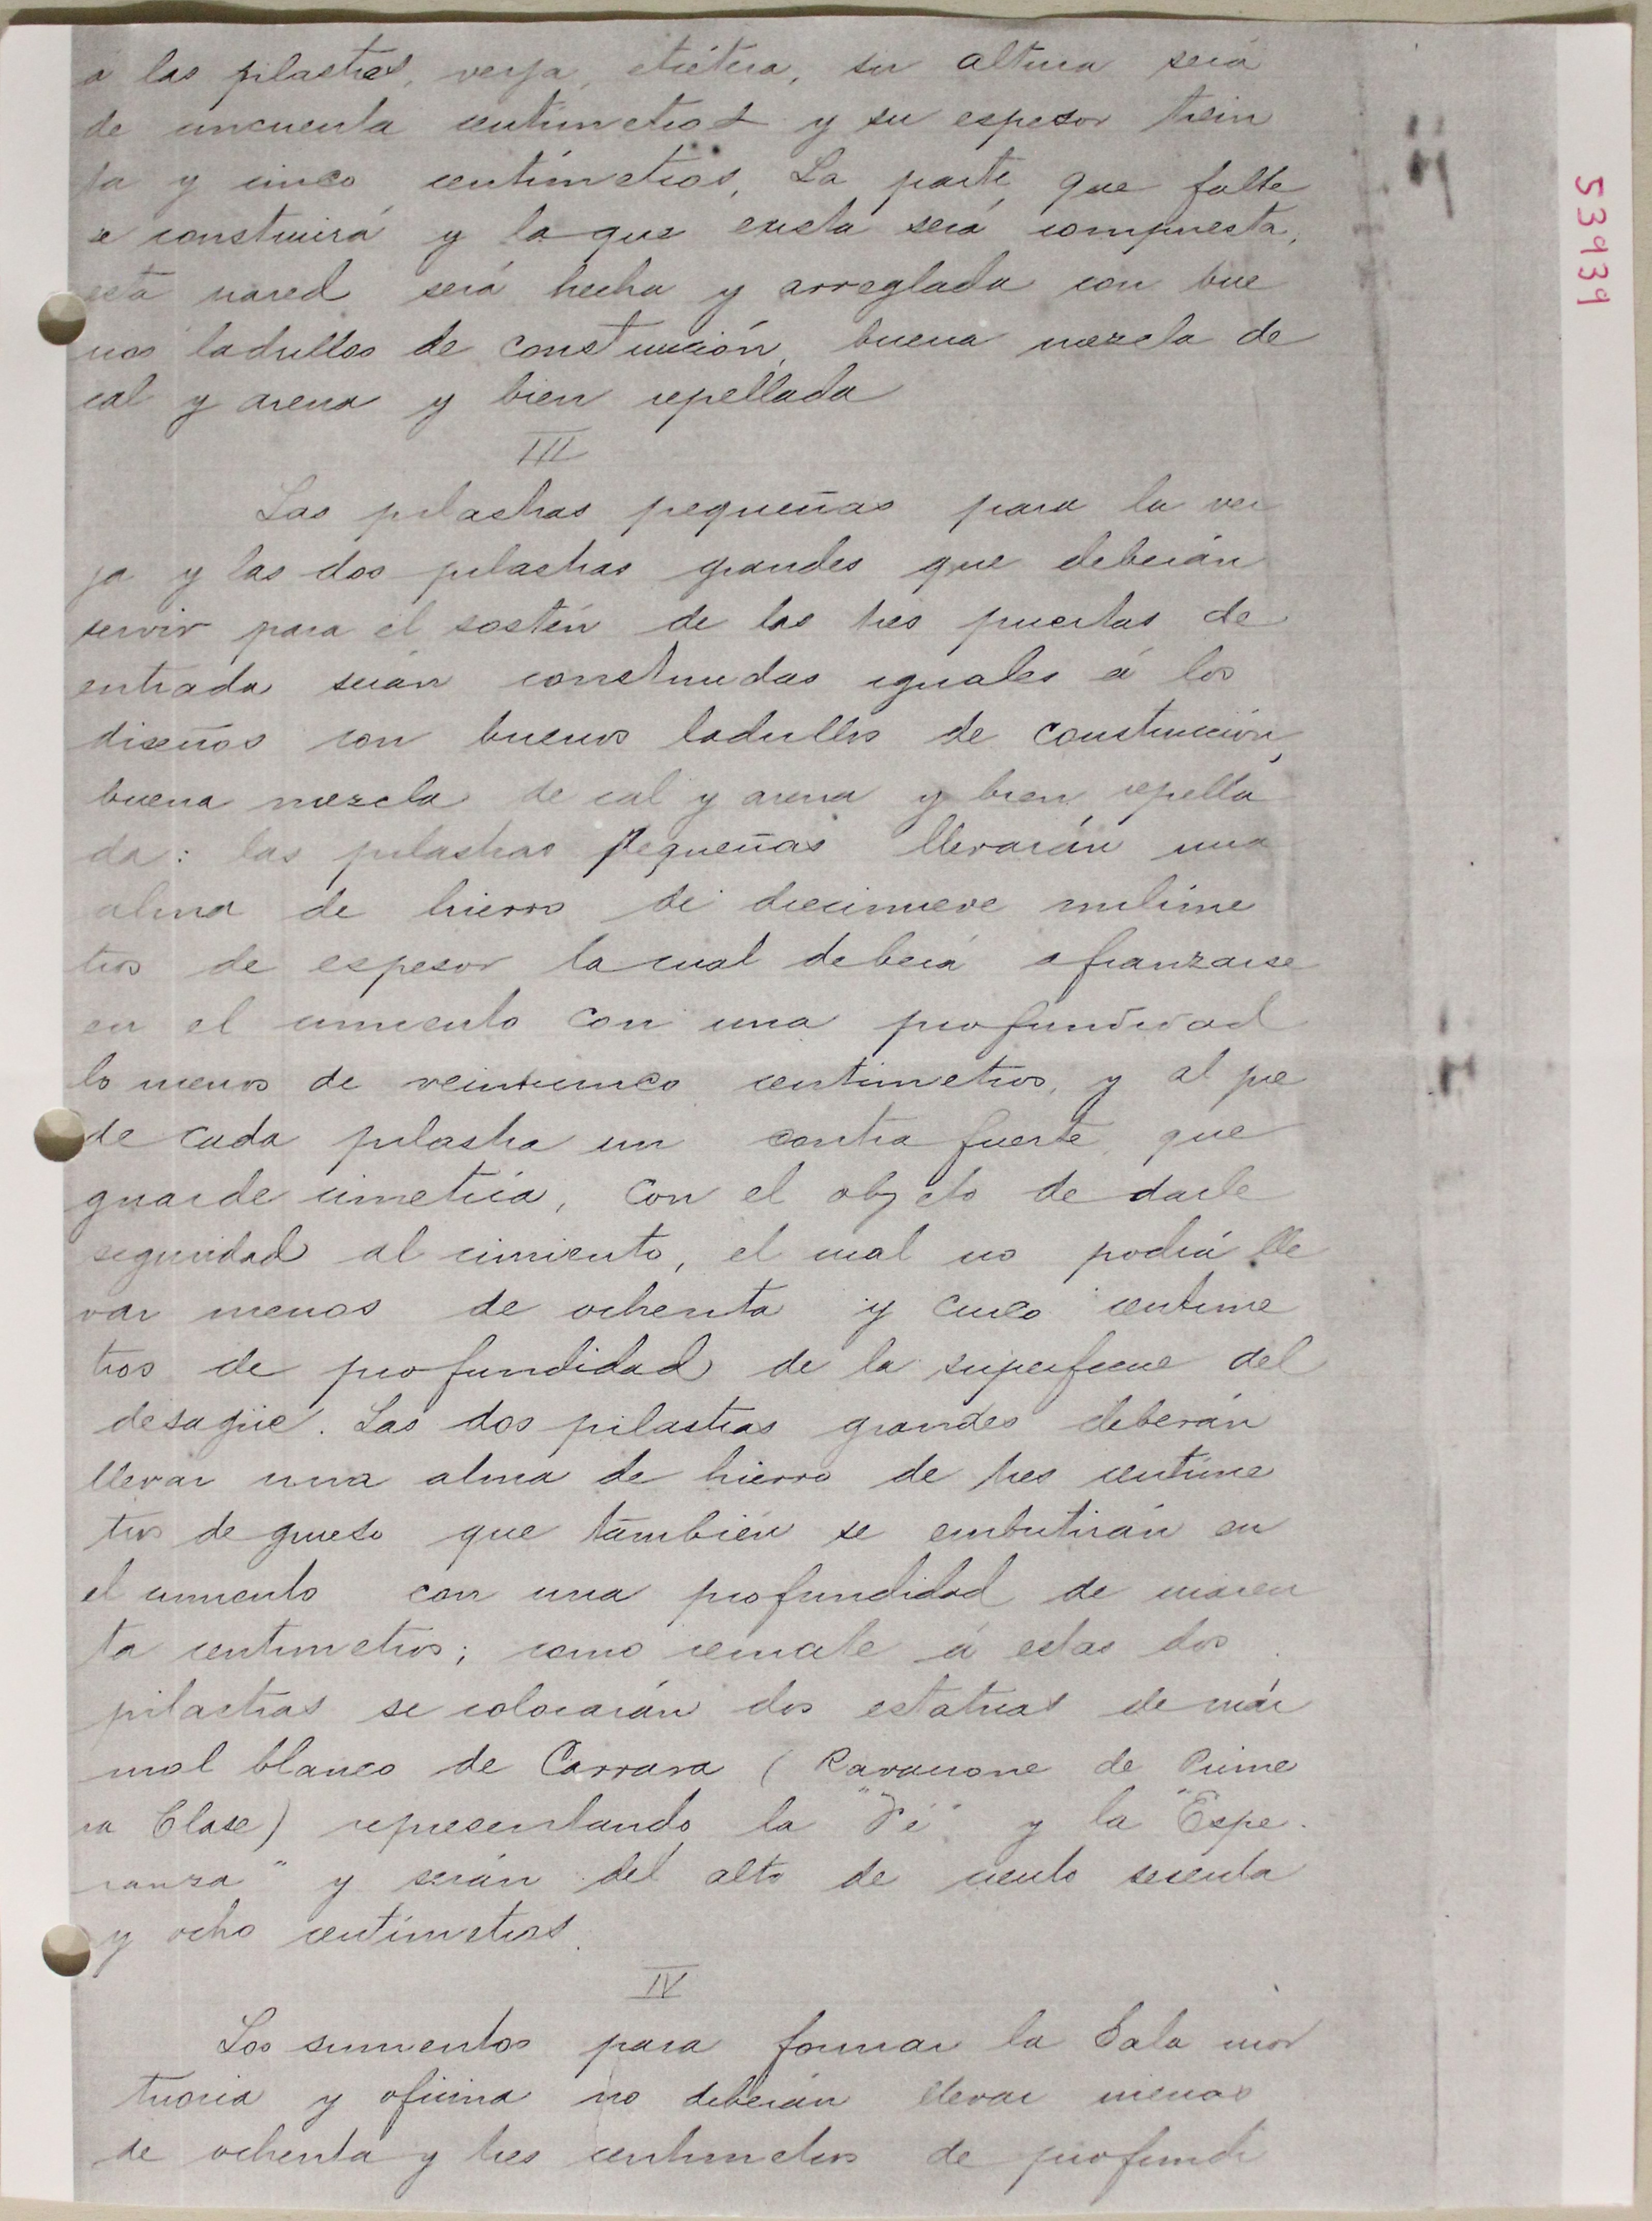 á las pilastras, verja, etcétera, su altura será
de cincuenta centimetros y su espesor trein
ta y cinco centímetros, La parte, que falte
se construirá y la que exista será compuesta,
esta pared será hecha y arreglada con bue
nos ladrillos de construcción, buena mezcla de
cal y arena y bien repellada
III
Las pilastras pequeñas para la ver
ja y las dos pilastras grandes que deberán
servir para el sostén de las tres puertas de
entrada serán construidas iguales á los
diseños con buenos ladrillos de construcción,
buena mezcla de cal y arena y bien repella
da: las pilastras pequeñas llevarán una
alma de hierro de diecinueve milime
tros de espesor la cual deberá afianzarse
en el cimiento con una profundidad
lo menos de veinticinco centimetros, y al pie
de cada pilastra un contra fuerte, que
guarde cimetría, con el objeto de darle
seguridad al cimiento, el cual no podrá lle
var menos de ochenta y cinco centime
tros de profundidad de la superficie del
desagüe. Las dos pilastras grandes deberán
llevar una alma de hierro de tres centime
tros de grueso que también se embutirán en
el cimiento con una profundidad de cuaren
ta centimetros; como remate á estas dos
pilastras se colocarán dos estatuas de már
mol blanco de Carrara (Ravacione de Prime
ra Clase) representando la "Fé" y la "Espe
ranza" y serán del alto de ciento sesenta
y ocho centímetros.
IV
Los simientos para formar la Sala mor
tuoria y oficina no deberán llevar menos
de ochenta y tres centimetros de profundi
53939